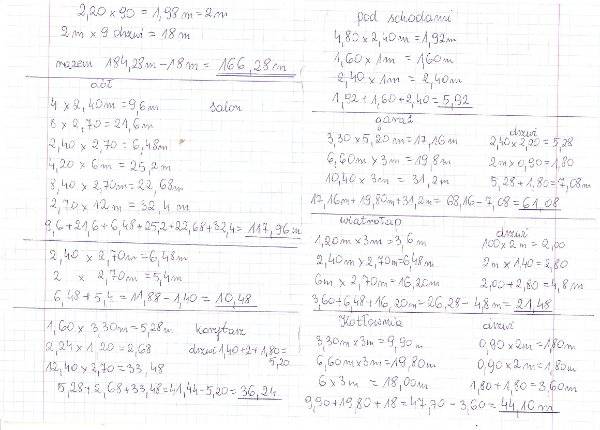 2,20 x 90 = 1,98m = 2m
2m x 9 drzwi = 18m
razem 184,28m - 18m = 166,28m
dół
salon
4 x 2,40m = 9,6m
8 x 2,70 = 21,6m
2,40 x 2,70 = 6,48m
4,20 x 6m = 25,2m
8,40 x 2,70m = 22,68m
2,70 x 12m = 32,4m
9,6+21,6+6,48+25,2+22,68+32,4= 117,96m
2,40 x 2,70m = 6,48m
2 x 2,70m = 5,4m
6,48 + 5,4 = 11,88 - 1,40 = 10,48
1,60 x 3,30m = 5,28m korytarz
2,24 x 1,20 = 2,68 drzwi 1,40+2+1,80=
5,20
12,40 x 2,70 = 33,48
5,28+2,68+33,48=41,44-5,20= 36,24
pod schodami
4,80 x 2,40m = 1,92m
1,60 x 1m = 1,60m
2,40 x 1m = 2,40m
1,92 + 1,60 + 2,40 = 5,92
garaż drzwi
3,30 x 5,20m = 17,16m 2,40 x 2,20 = 5,28
6,60m x 3m = 19,8m 2m x 0,90 = 1,80
10,40 x 3m = 31,2m 5,28 + 1,80 = 7,08m
17,16m+19,80m+31,2m= 68,16 - 7,08= 61,08
wiatrołap drzwi
1,20m x 3m = 3,6m 100 x 2m = 2,00
2,40m x 2,70m=6,48m 2m x 1,40 = 2,80
6m x 2,70m = 16,20m 2,00 + 2,80 = 4,8m
3,60+6,48+16,20m=26,28 - 4,8m = 21,48
Kotłownia drzwi
3,30m x 3m = 9,90m 0,90 x 2m = 1,80m
6,60m x 3m = 19,80m 0,90 x 2m = 1,80m
6 x 3m = 18,00m 1,80 + 1,80 = 3,60m
9,90+19,80+18 = 47,70 - 3,60 = 44,10m